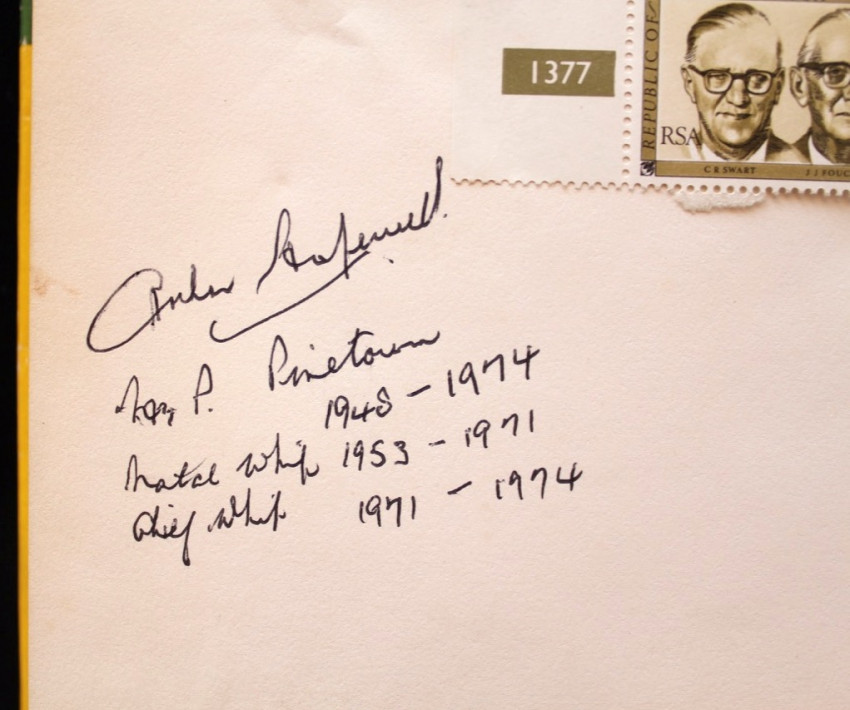 1377
REPUBLIC OF
RSA
C R SWART
J J FOUC
Arthur Hopewell.
M.P. Pinetown
1948 – 1974
Natal Whip 1953 – 1971
Chief Whip 1971 – 1974